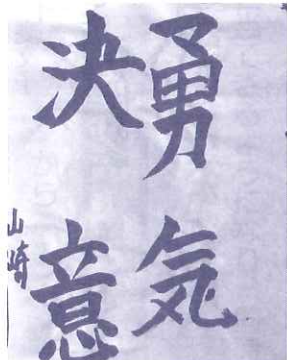 勇気
決意
山崎